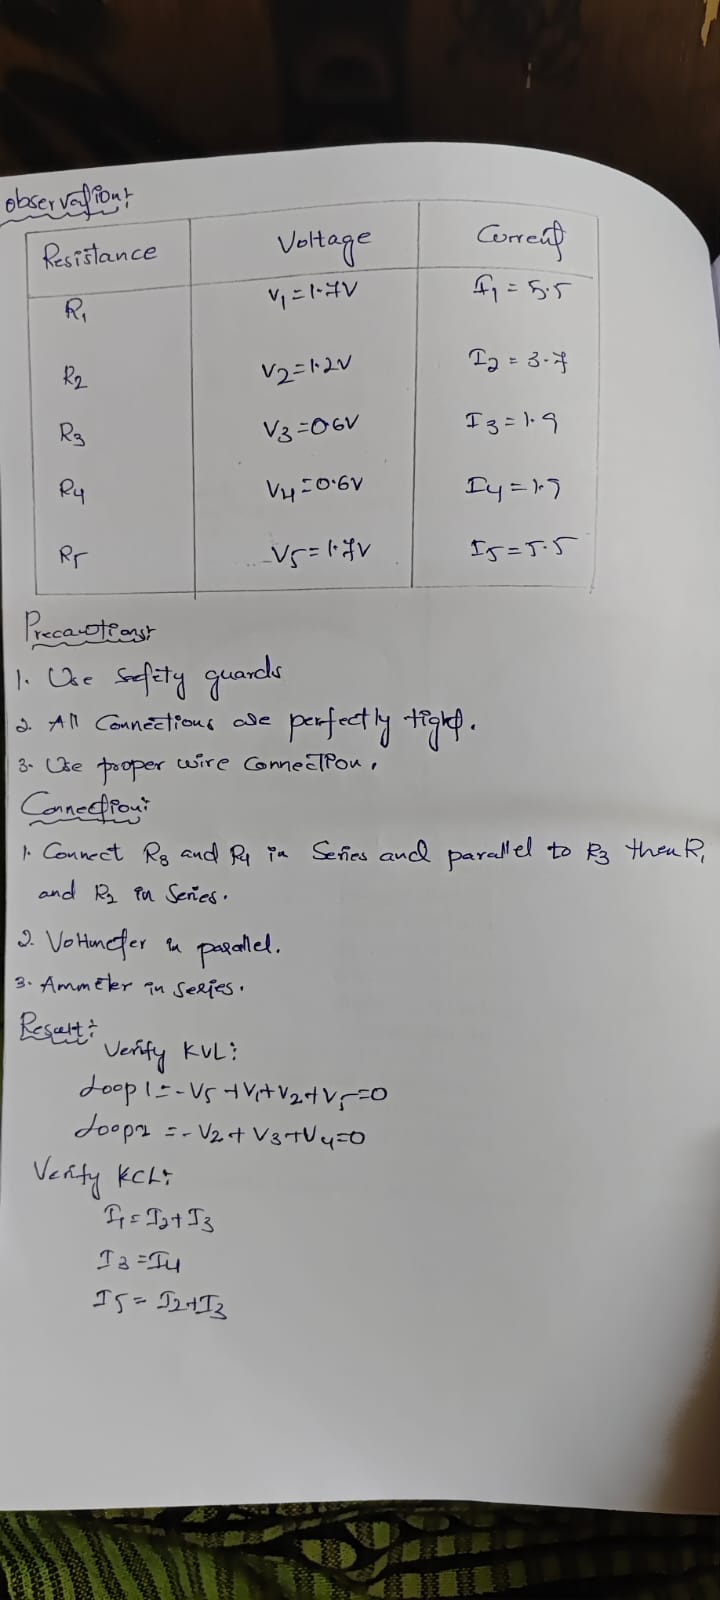 Observation:
Resistance Voltage Current
R1 V1=1.7V I1 = 5.5
R2 V2=1.2V I2 = 3.7
R3 V3=0.6V I3=1.9
R4 V4=0.6V I4=1.9
R5 V5=1.7V I5=5.5
Precautions:
1. Use Safety guards
2. All Connections are perfectly tight.
3. Use proper wire Connection.
Connection:
1. Connect R3 and R4 in Series and parallel to R3 then R1
and R2 in Series.
2. Voltmeter in parallel.
3. Ammeter in series.
Result:
Verify KVL:
Loop 1 = -V5 + V1 + V2 + V5=0
Loop2 = -V2 + V3 + V4=0
Verify KCL:
I1 = I2 + I3
I3 = I4
I5 = I2+I3